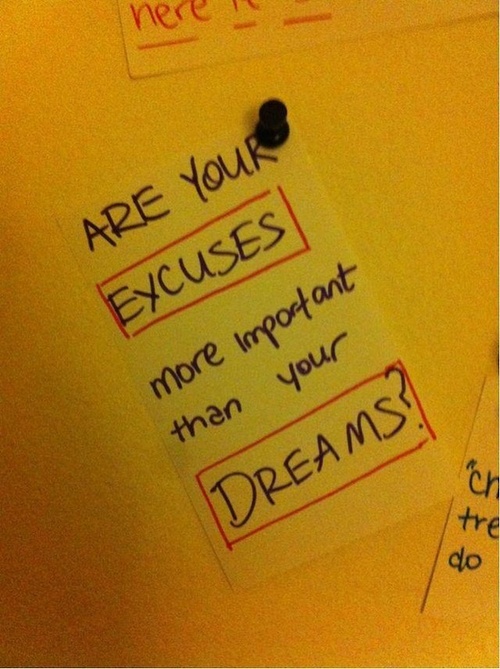 here
ARE YOUR
EXCUSES
more important
than your
DREAMS?
"ch
tre
do